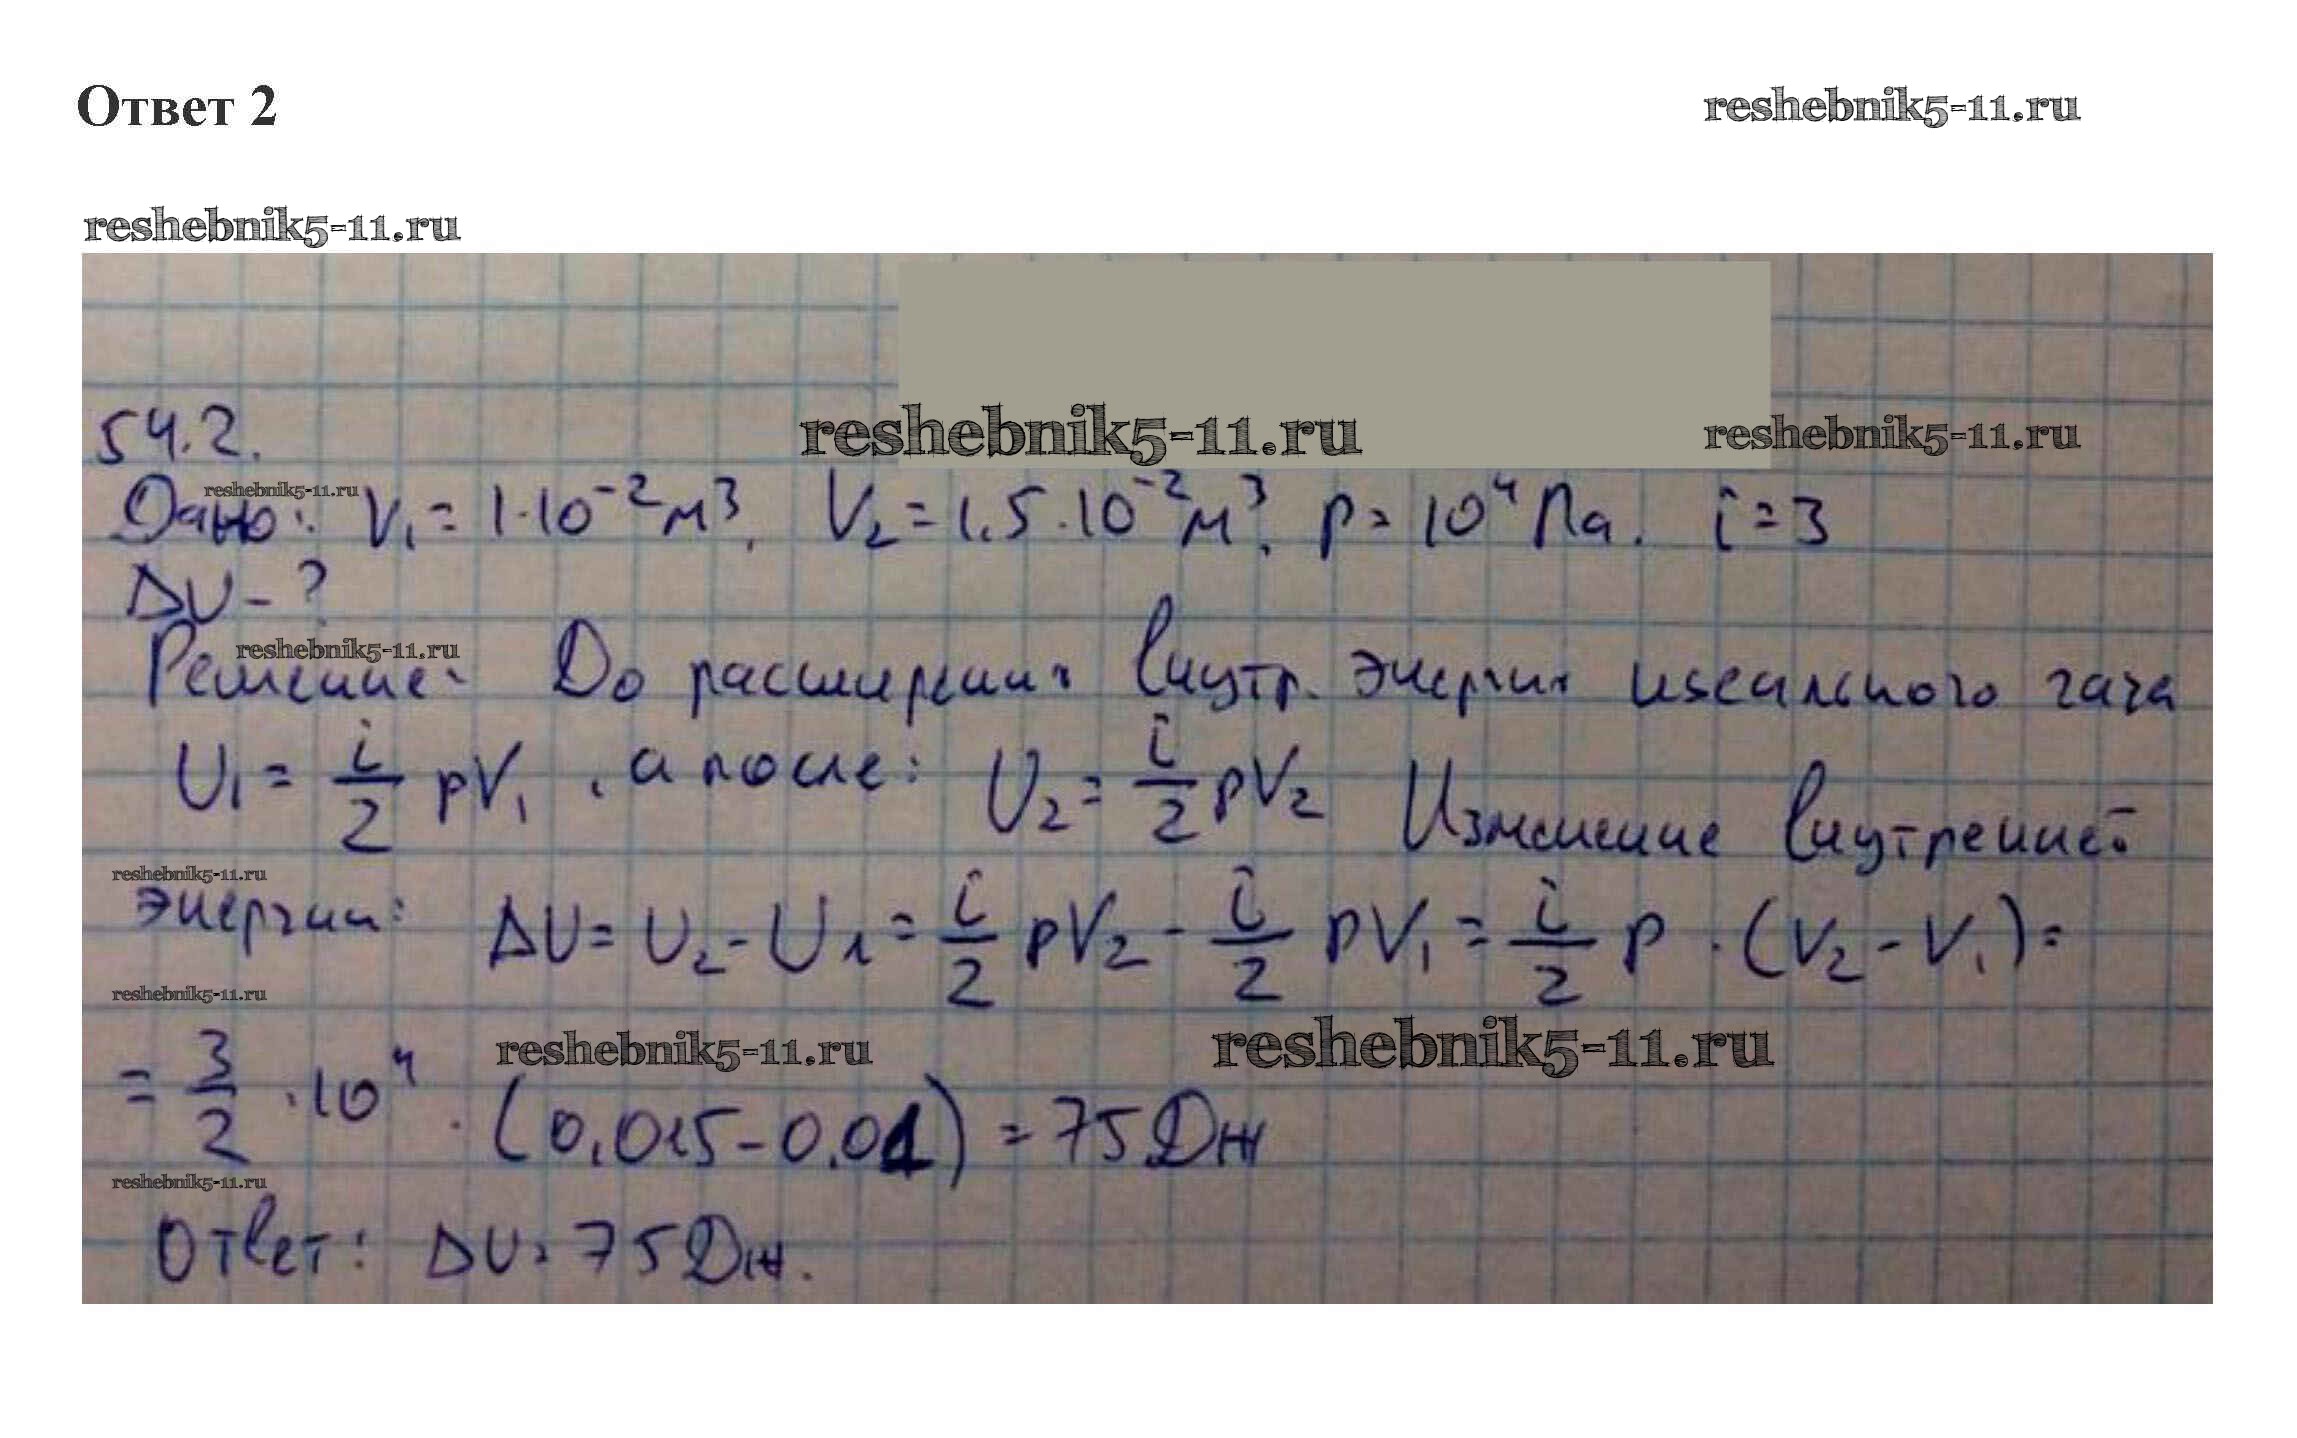 Ответ 2
reshebnik5-11.ru
reshebnik5-11.ru
54.2.
reshebnik5-11.ru
reshebnik5-11.ru
reshebnik5-11.ru
Дано: V₁ = 1·10⁻² м³, V₂ = 1,5·10⁻² м³, p = 10⁴ Па. i = 3
ΔU - ?
reshebnik5-11.ru
Решение: До расширения внутр. энергия идеального газа
U₁ = i/2 pV₁, а после: U₂ = i/2 pV₂ Изменение внутренней
reshebnik5-11.ru
энергии: ΔU = U₂ - U₁ = i/2 pV₂ - i/2 pV₁ = i/2 p · (V₂ - V₁) =
reshebnik5-11.ru
reshebnik5-11.ru
reshebnik5-11.ru
= 3/2 · 10⁴ · (0,015 - 0,01) = 75 Дж
reshebnik5-11.ru
Ответ: ΔU = 75 Дж.